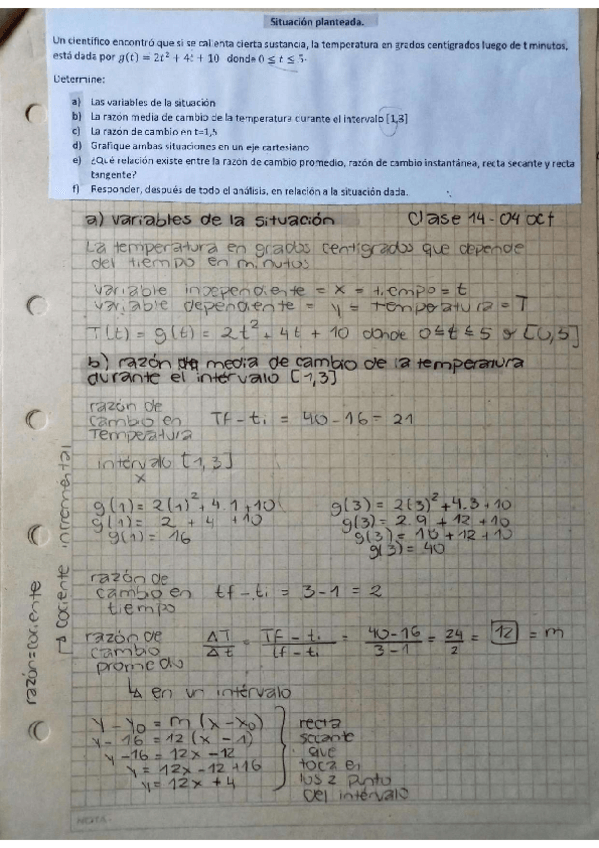 Situación planteada.
Un científico encontró que si se calienta cierta sustancia, la temperatura en grados centígrados luego de t minutos,
está dada por g(t) = 2t² + 4t + 10 donde 0 ≤ t ≤ 5.
Determine:
a) Las variables de la situación
b) La razón media de cambio de la temperatura durante el intervalo [1,3]
c) La razón de cambio en t=1,5
d) Grafique ambas situaciones en un eje cartesiano
e) ¿Qué relación existe entre la razón de cambio promedio, razón de cambio instantánea, recta secante y recta
tangente?
f) Responder, después de todo el análisis, en relación a la situación dada.
a) variables de la situación Clase 14-04 oct
La temperatura en grados centigrados que depende
del tiempo en minutos
variable independiente = x = tiempo = t
variable dependiente = y = temperatura = T
T(t) = g(t) = 2t² + 4t + 10 donde 0 ≤ t ≤ 5 y [0,5]
b) razón de media de cambio de la temperatura
durante el intervalo [1,3]
razón de
cambio en Tf - ti = 40 - 16 = 21
Temperatura
intervalo [1,3]
x
g(1) = 2(1)² + 4.1 + 10 g(3) = 2(3)² + 4.3 + 10
g(1) = 2 + 4 + 10 g(3) = 2.9 + 12 + 10
g(1) = 16 g(3) = 18 + 12 + 10
g(3) = 40
razón de
cambio en tf - ti = 3 - 1 = 2
tiempo
razón de
cambio ΔT/Δt = Tf - ti/tf - ti = 40 - 16/3 - 1 = 24/2 = 12 = m
promedio
↳ en un intérvalo
y - y₀ = m (x - x₀) recta
y - 16 = 12 (x - 1) secante
y - 16 = 12x - 12 que
y = 12x - 12 + 16 toca en
y = 12x + 4 los 2 punto
del intérvalo
razón = cociente
↳ cociente incremental
NOTA